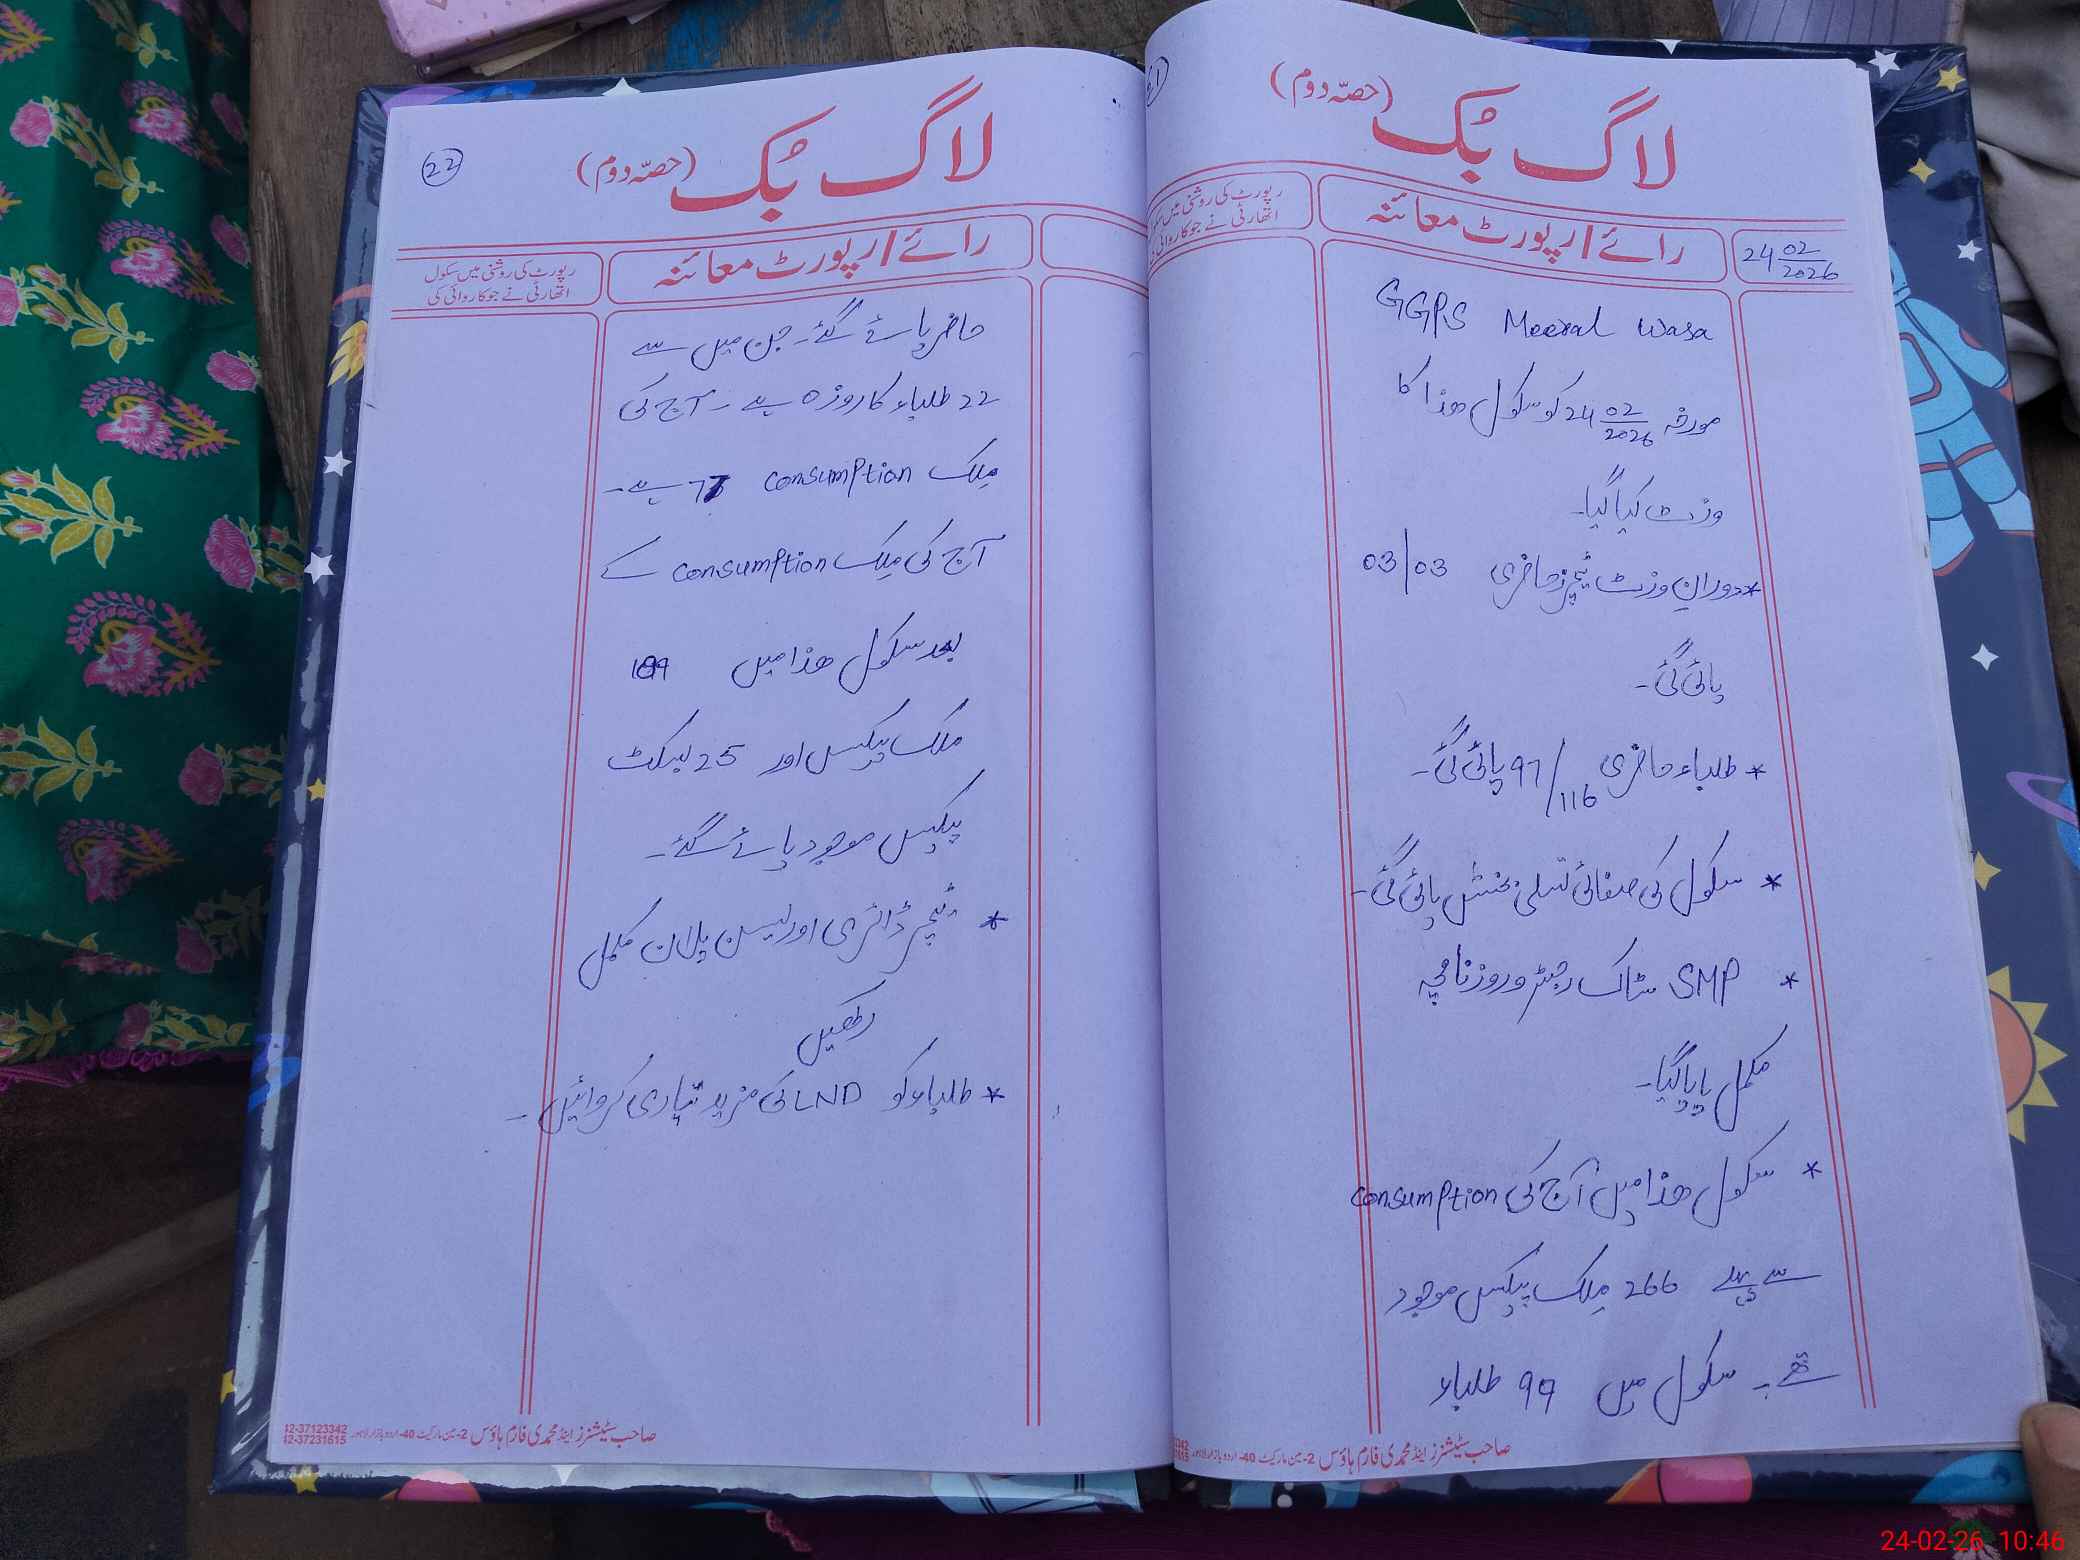 21
لاگ بُک (حصّہ دوم)
24 02/2026
رائے/رپورٹ معائنہ
رپورٹ کی روشنی میں سکول
اتھارٹی نے جو کاروائی کی
GGPS Meeral Wasa
مورخہ 24 02/2026 کو سکول ھذا کا
وزٹ کیا گیا۔
* دورانِ وزٹ ٹیچرز حاضری 03/03
پائی گئی۔
* طلباء حاضری 97/116 پائی گئی۔
* سکول کی صفائی تسلی بخش پائی گئی۔
* SMP سٹاک رجسٹر و روزنامچہ
مکمل پایا گیا۔
* سکول ھذا میں آج کی consumption
سے پہلے 266 مِلک پیکس موجود
تھے۔ سکول میں 99 طلباء
صاحب سٹیشنرز اینڈ محمدی فارم ہاؤس 2-مین مارکیٹ 40-اردو بازار لاہور
22
لاگ بُک (حصّہ دوم)
رائے/رپورٹ معائنہ
رپورٹ کی روشنی میں سکول
اتھارٹی نے جو کاروائی کی
حاضر پائے گئے۔ جن میں سے
22 طلباء کا روزہ ہے۔ آج کی
مِلک consumption 77 ہے۔
آج کی مِلک consumption کے
بعد سکول ھذا میں 189
ملک پیکس اور 25 بسکٹ
پیکس موجود پائے گئے۔
* ٹیچر ڈائری اور لیسن پلان مکمل
رکھیں
* طلباء کو LND کی مزید تیاری کروائیں۔
صاحب سٹیشنرز اینڈ محمدی فارم ہاؤس 2-مین مارکیٹ 40-اردو بازار لاہور
12-37123342
12-37231615
24-02-26 10:46